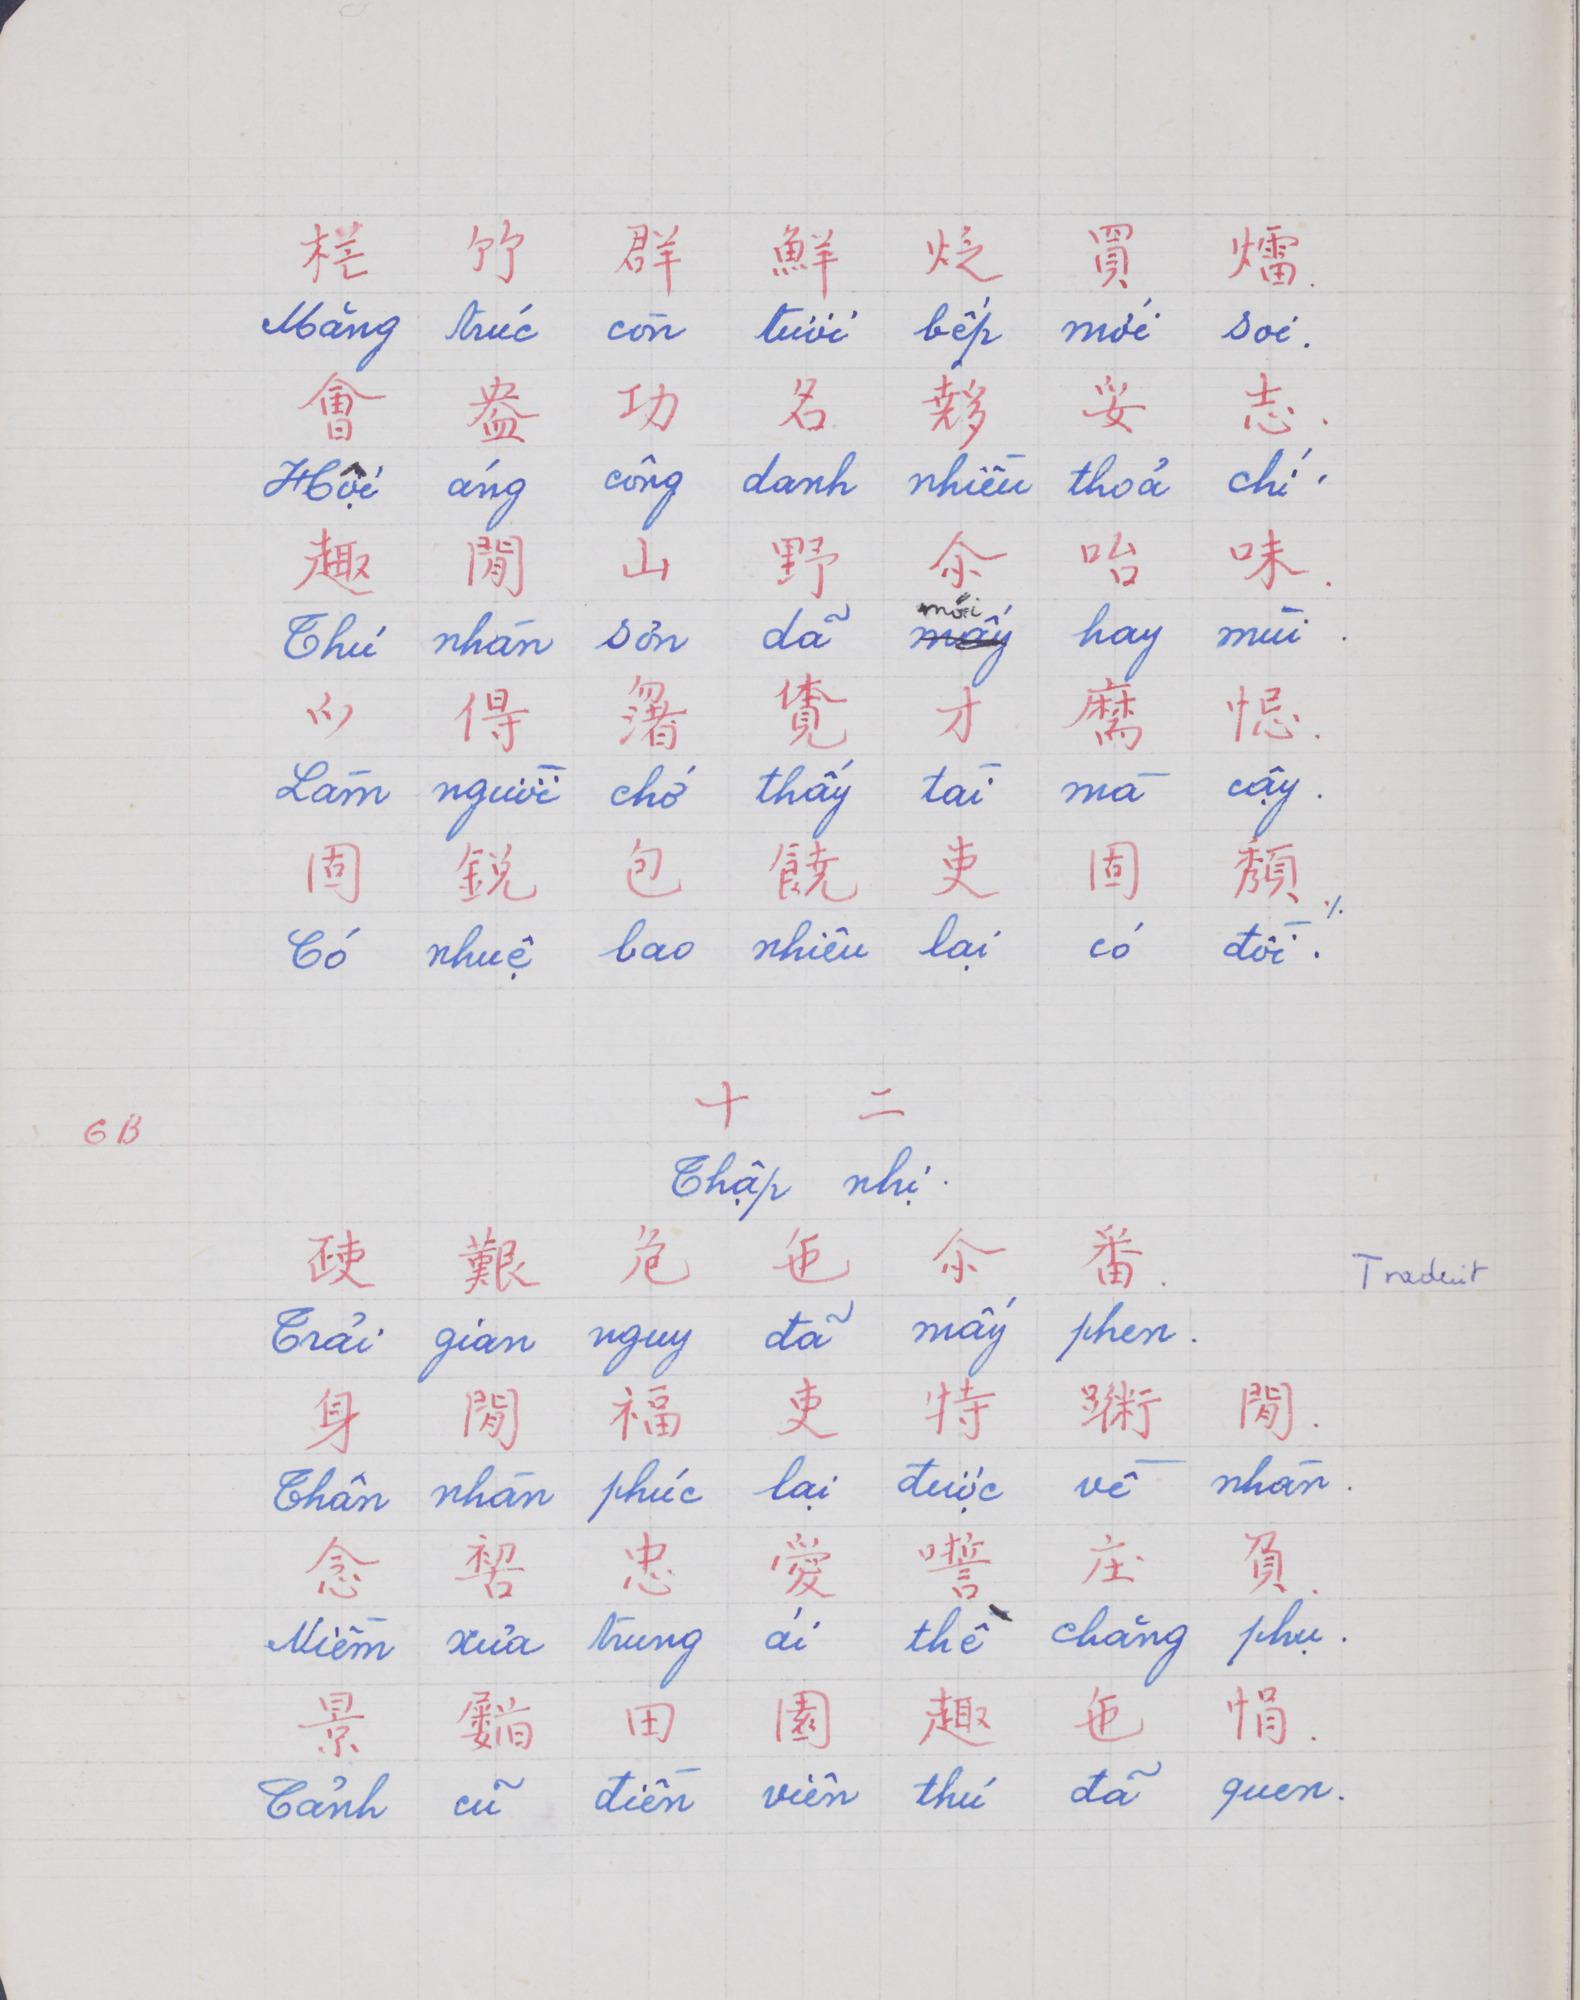 𣒱 竹 群 鮮 烾 買 㷟.
Măng trúc còn tươi bếp mới soi.
會 盎 功 名 𡗊 妥 志.
Hội áng công danh nhiều thoả chí.
趣 閒 山 野 尒 咍 味.
mới
Thú nhàn sơn dã mấy hay mùi.
𠆳 得 渚 覺 才 麻 忌.
Làm người chớ thấy tài mà cậy.
固 鋭 包 饒 吏 固 頹 ./.
Có nhuệ bao nhiêu lại có đồi.
十 二
6B
Thập nhị.
艱 危 㐌 尒 番.
Tradeuit
Trải gian nguy đã mấy phen.
身 閒 福 吏 特 衛 閒.
Thân nhàn phúc lại được về nhàn.
念 𥘶 忠 愛 誓 庄 負.
Niềm xưa trung ái thề chăng phụ.
景 田 園 趣 㐌 悁.
Cảnh cũ điền viên thú đã quen.